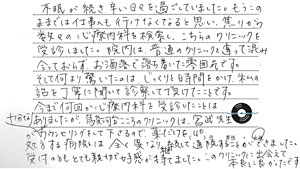 不眠が続き辛い日々を過ごしていました。もうこの
ままでは仕事も行けなくなると思い、焦りから
数多の心療内科を検索し、こちらのクリニックを
受診しました。院内は、普通のクリニックと違って混み
合っておらず、お洒落で落ち着いた雰囲気です。
そして何より驚いたのはじっくりと時間をかけ、私の
話を丁寧に聞いて診察して頂けたことです。
今まで何回か心療内科を受診したことは
ありましたが、駿河台こころのクリニックは、宮武先生
がカウンセリングをして下さるので、薬だけを
処する病院とは全く異なり、安心して通院することができました。
受付の方もとても親切で好感が持てました。このクリニックに出会えて
本当に良かったです